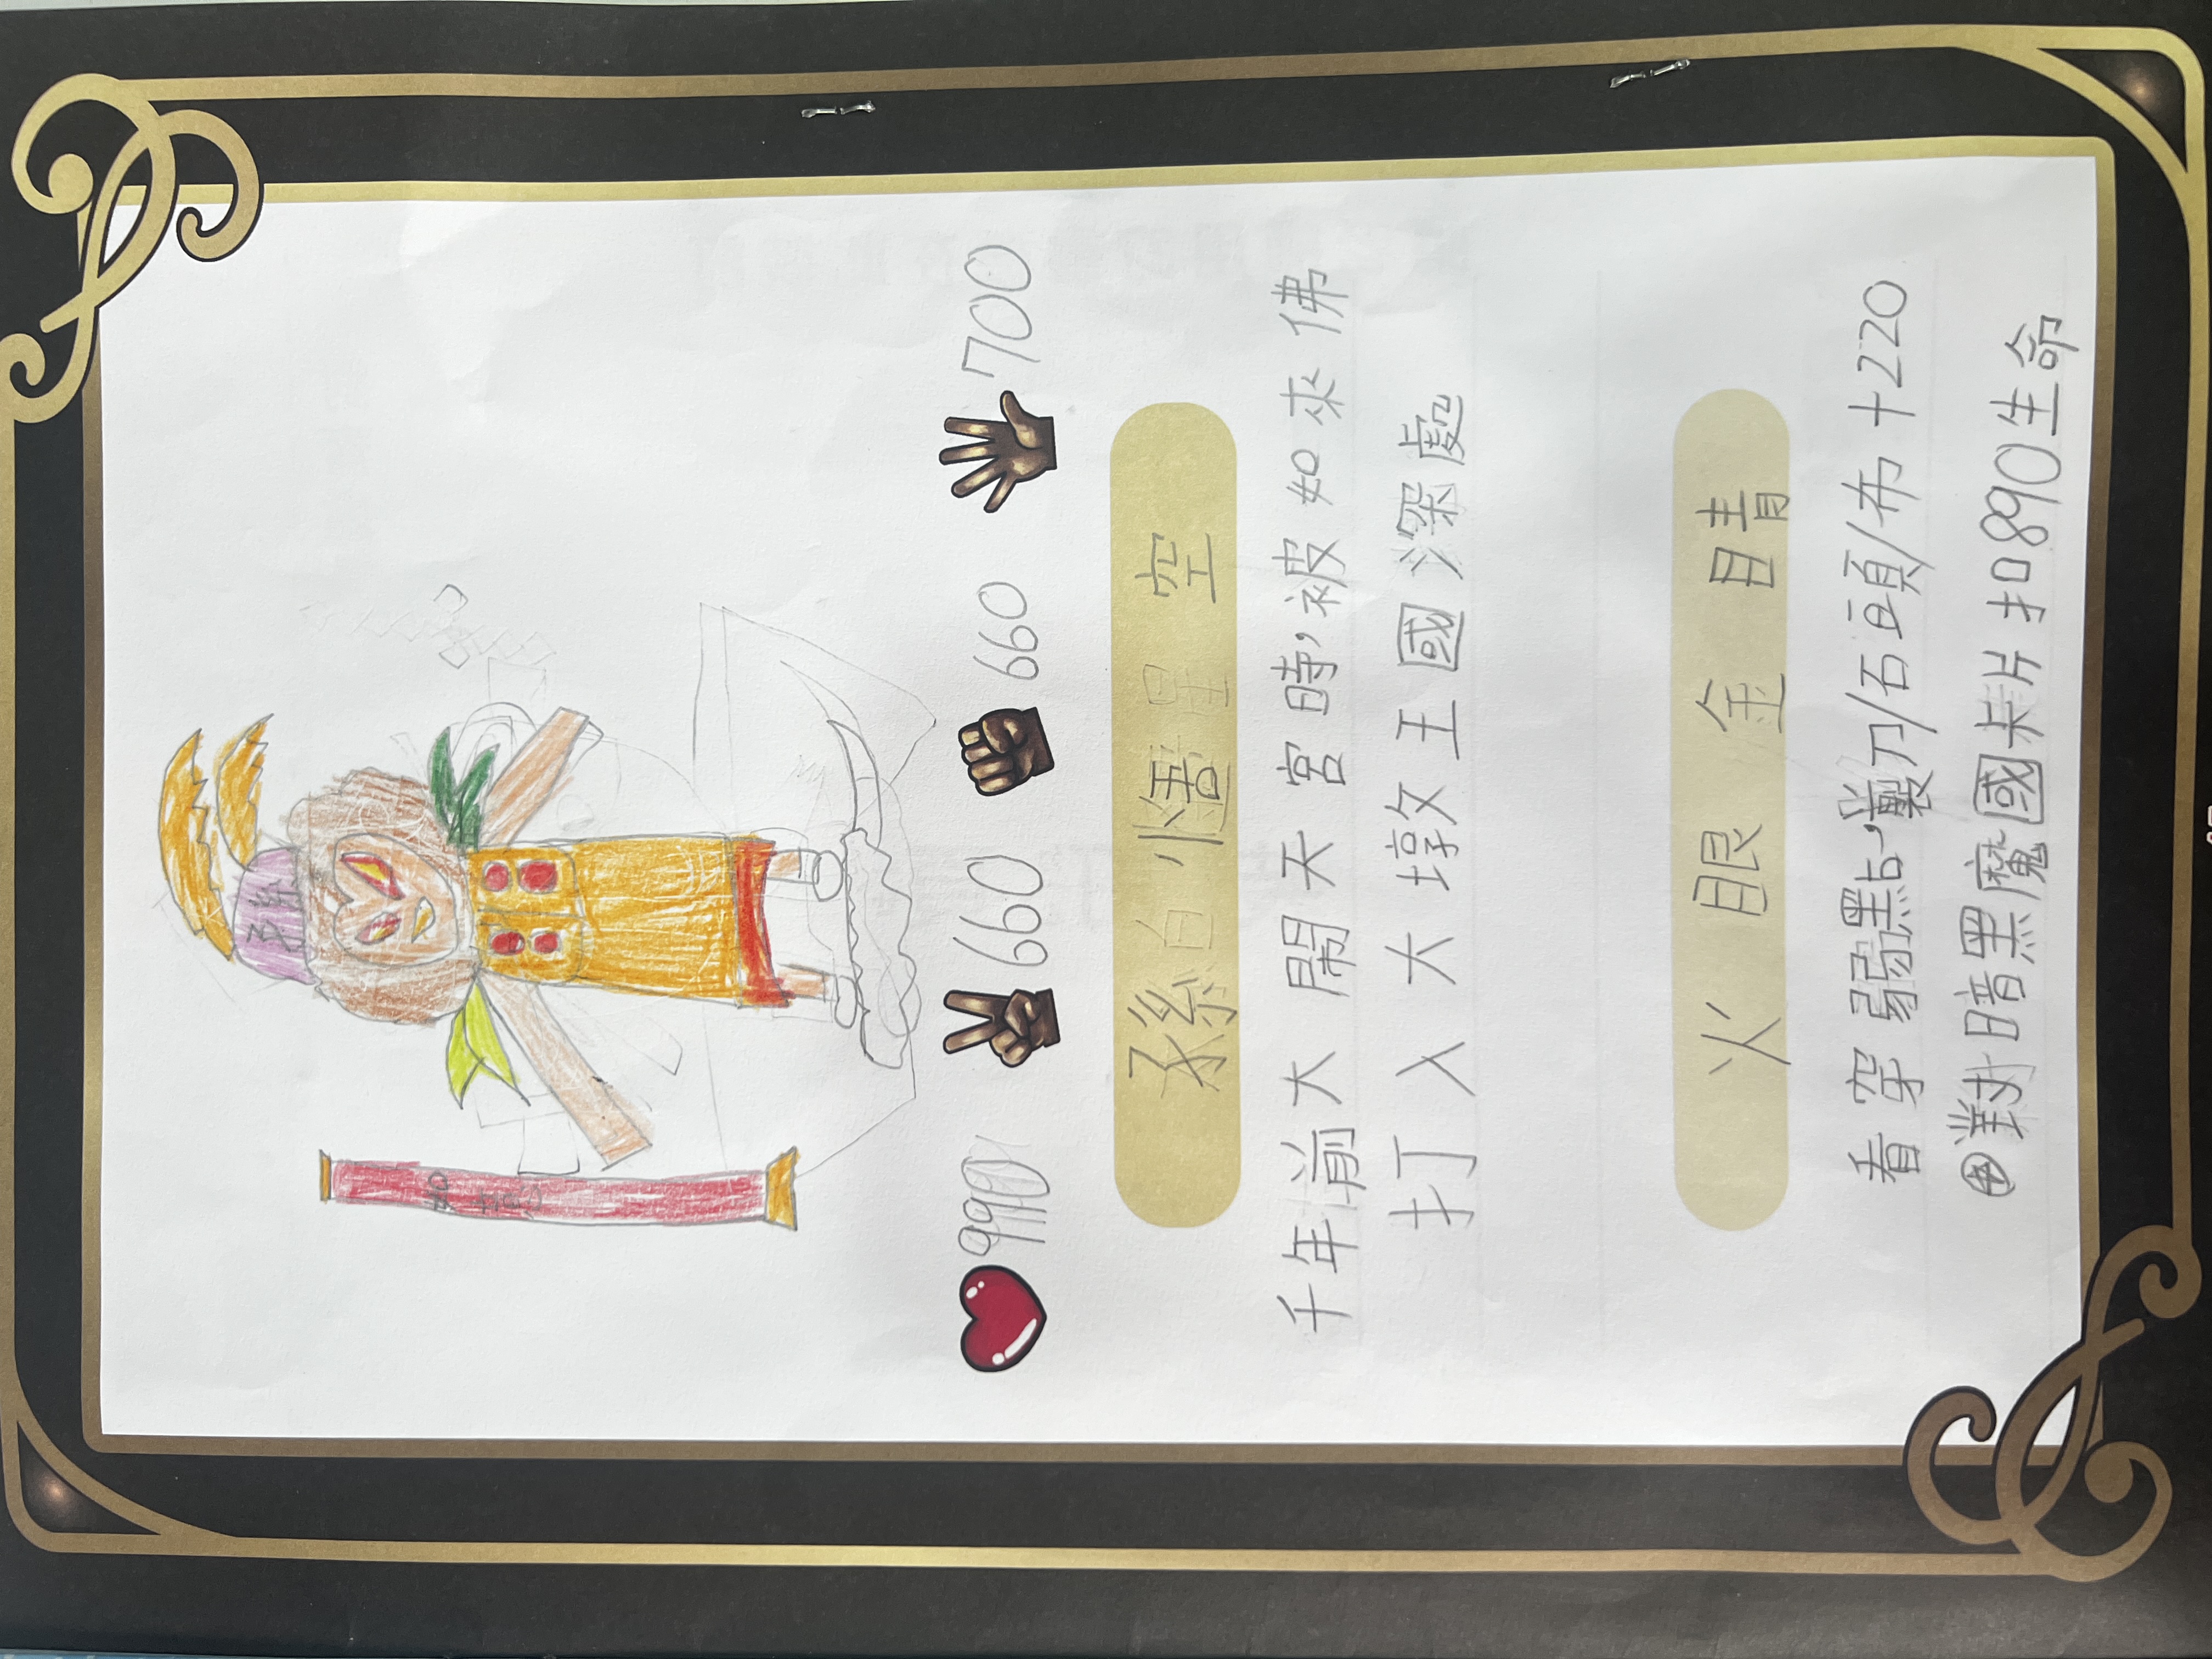 660
660
700
千年前大鬧天宮時,被如來佛
打入大墩王國深處
火眼金睛
看穿弱點,剪刀/石頭/布+220
對暗黑魔國卡片扣890生命